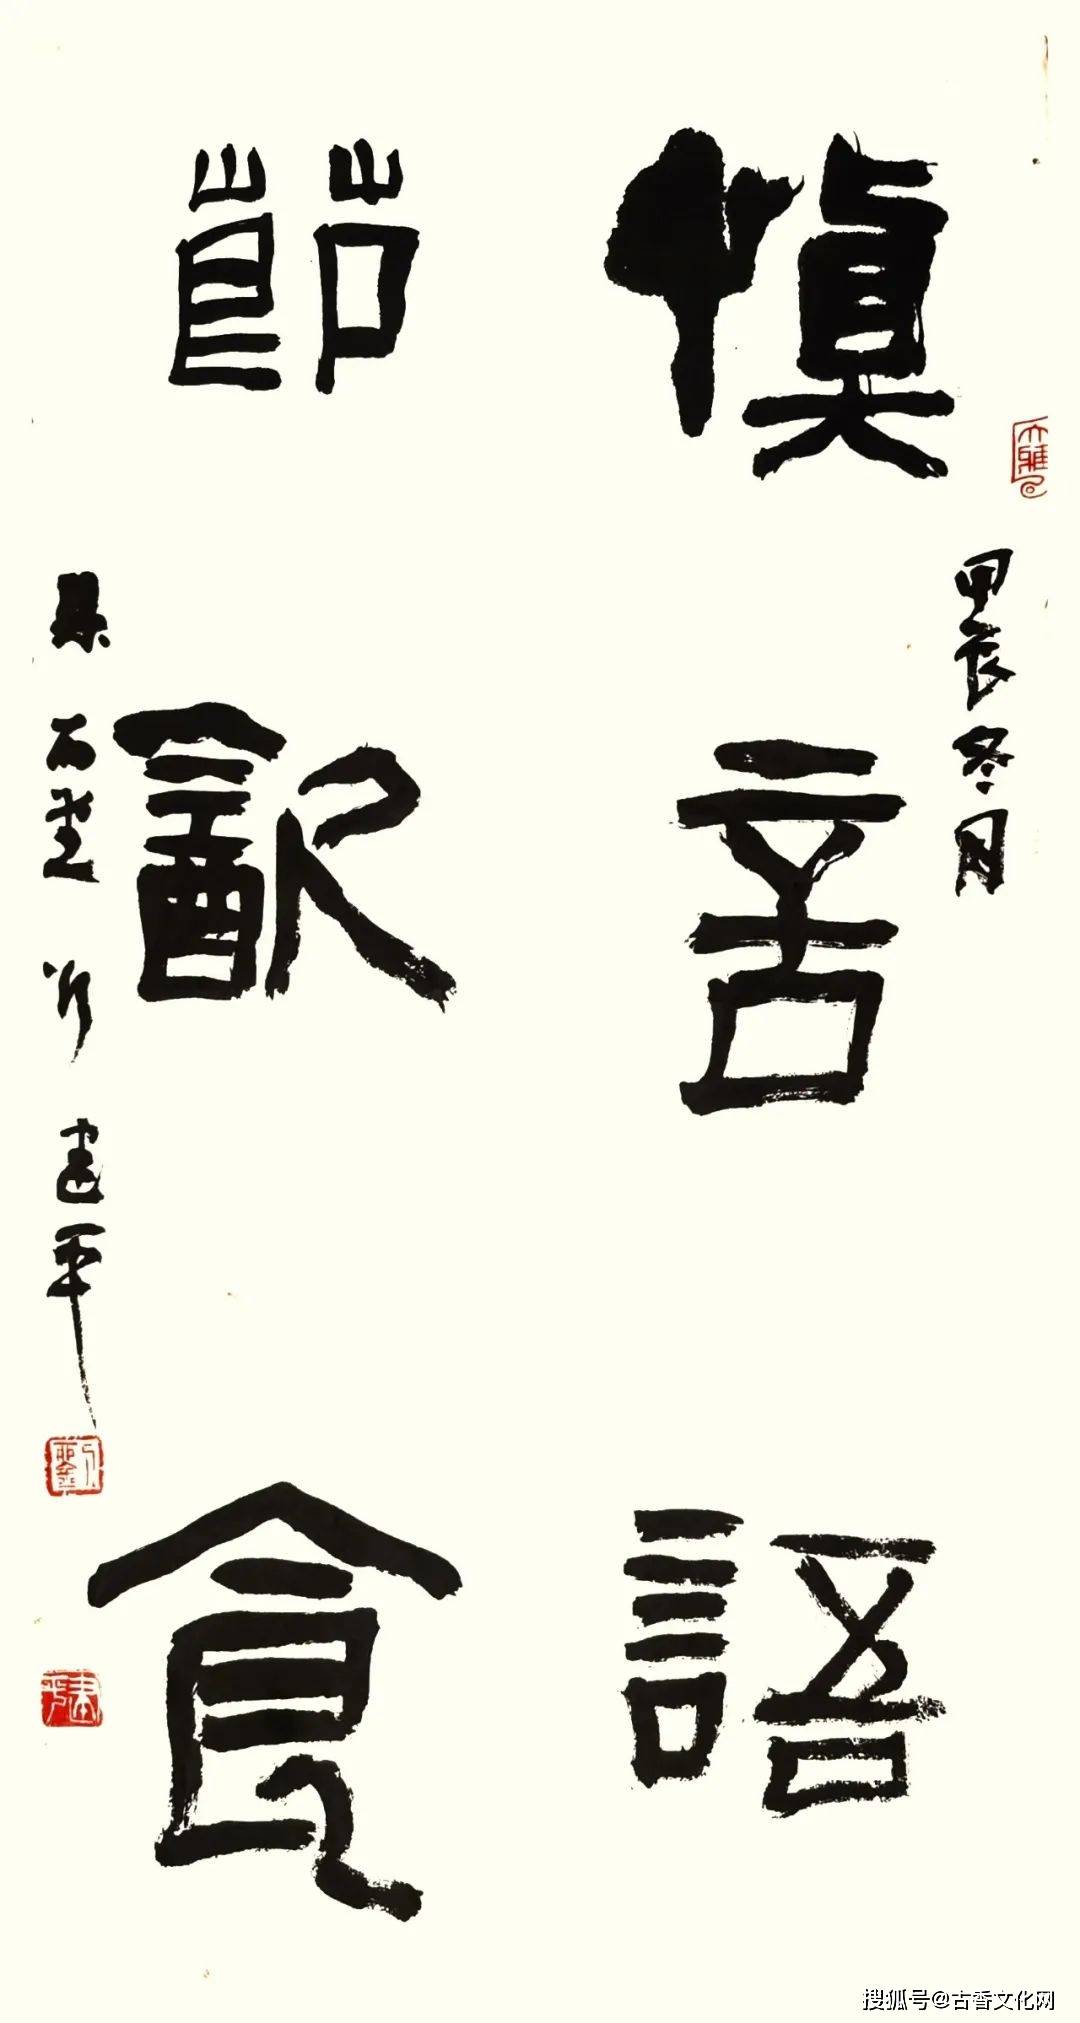 慎言語
節飲食
甲辰冬月
建平
搜狐号@古香文化网